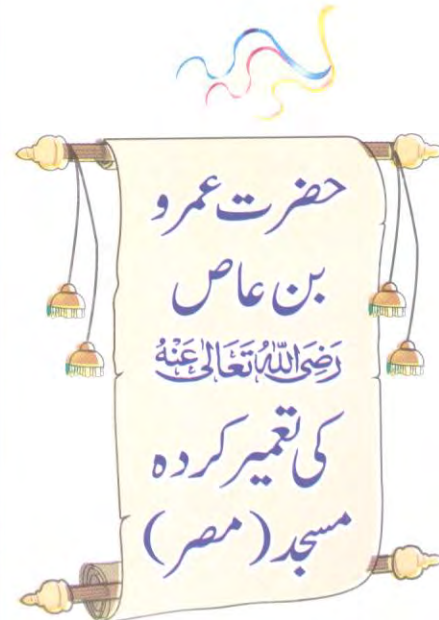 حضرت عمرو
بن عاص
رَضِیَ اللّٰہُ تَعَالٰی عَنْہُ
کی تعمیر کردہ
مسجد (مصر)